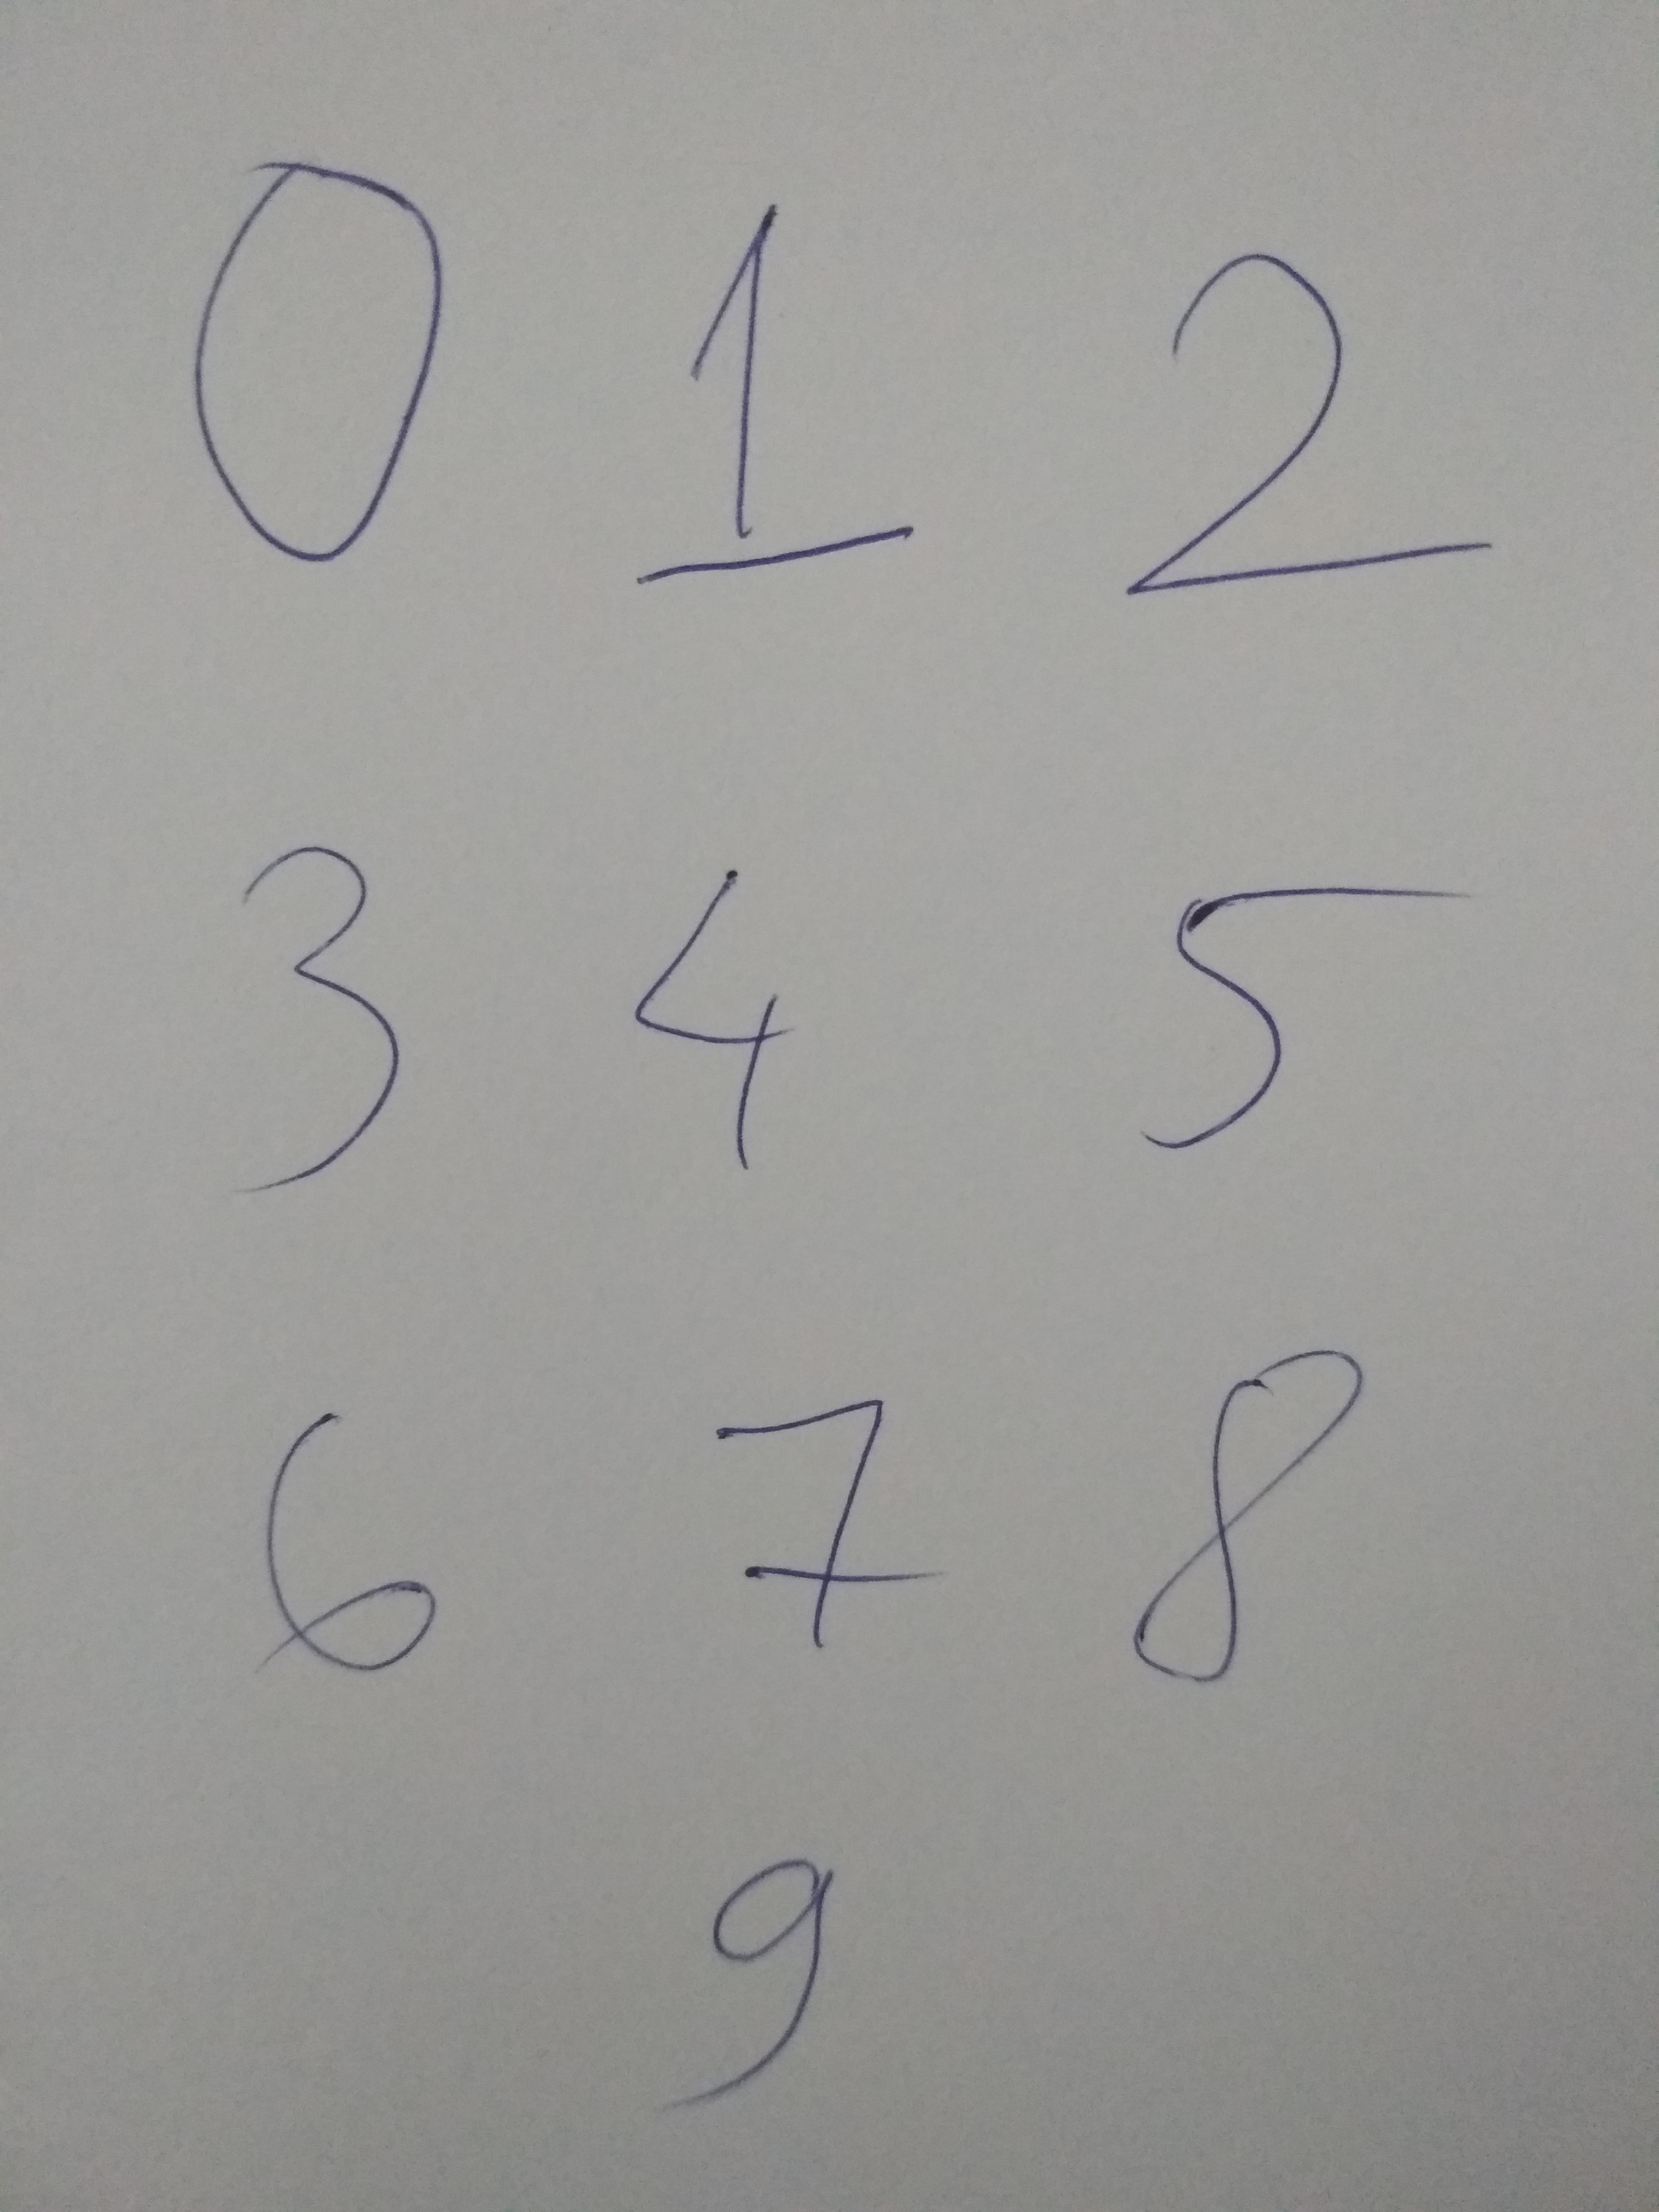 0 1 2
3 4 5
6 7 8
9